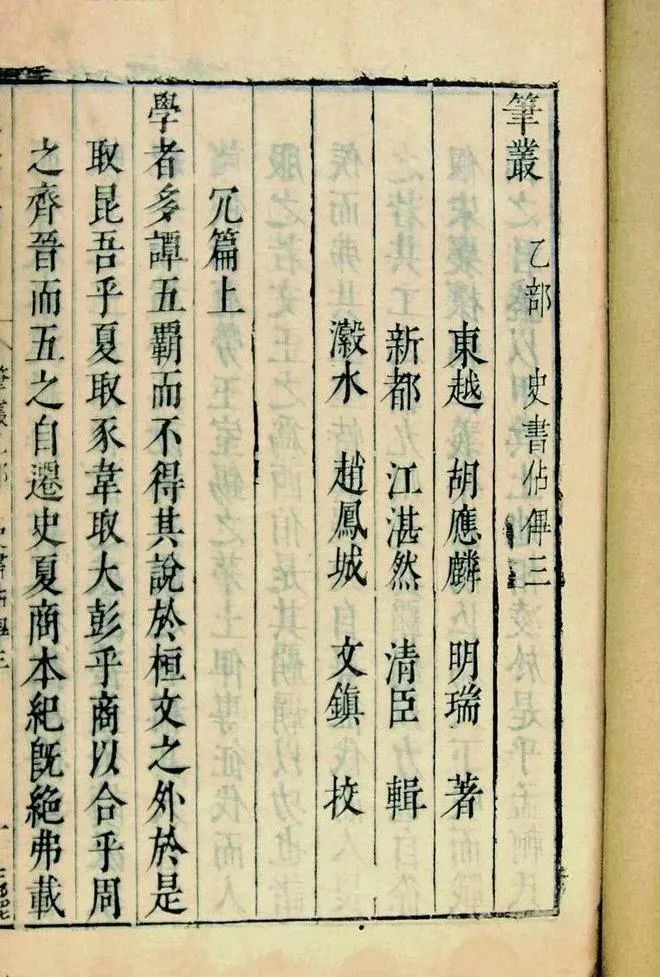 筆叢 乙部 史書佔𠌫三
東越 胡應麟 明瑞 著
新都 江湛然 清臣 輯
瀫水 趙鳳城 文鎮 挍
冗篇上
學者多譚五霸而不得其說於桓文之外於是
取昆吾乎夏取豕韋取大彭乎商以合乎周
之齊晉而五之自遷史夏商本紀旣絶弗載